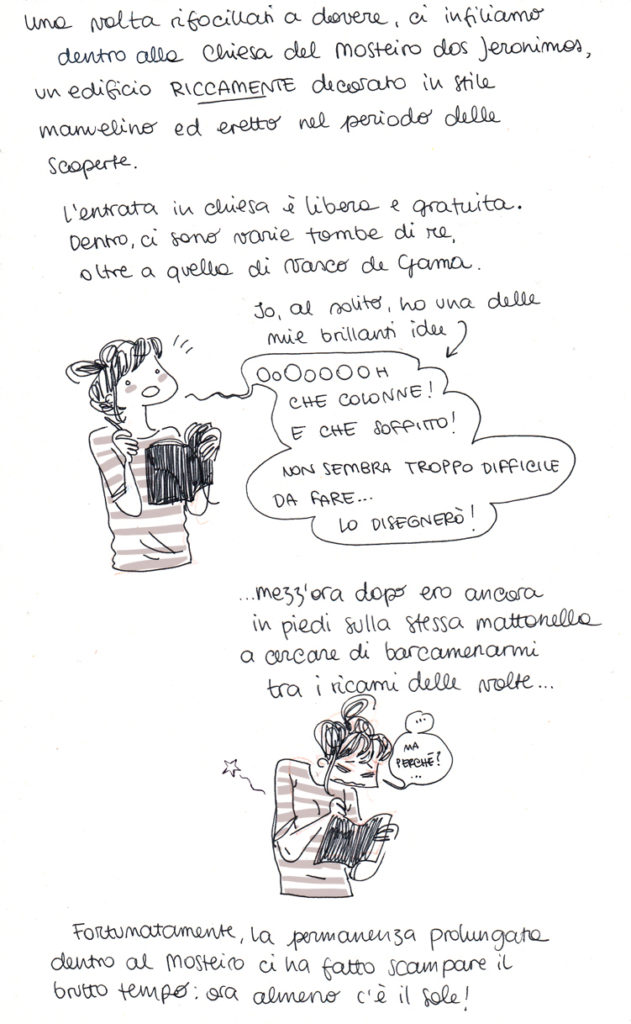 una volta rifocillati a dovere, ci infiliamo
dentro alla Chiesa del Mosteiro dos Jeronimos,
un edificio RICCAMENTE decorato in stile
manuelino ed eretto nel periodo delle
scoperte.
L'entrata in chiesa è libera e gratuita.
Dentro, ci sono varie tombe di re,
oltre a quella di Vasco de Gama.
Io, al solito, ho una delle
mie brillanti idee
OoOoOOOH
CHE COLONNE!
E CHE SOFFITTO!
NON SEMBRA TROPPO DIFFICILE
DA FARE...
LO DISEGNERÒ!
...mezz'ora dopo ero ancora
in piedi sulla stessa mattonella
a cercare di barcamenarmi
tra i ricami delle volte...
...
MA
PERCHÉ?
...
Fortunatamente, la permanenza prolungata
dentro al Mosteiro ci ha fatto scampare il
brutto tempo: ora almeno c'è il sole!